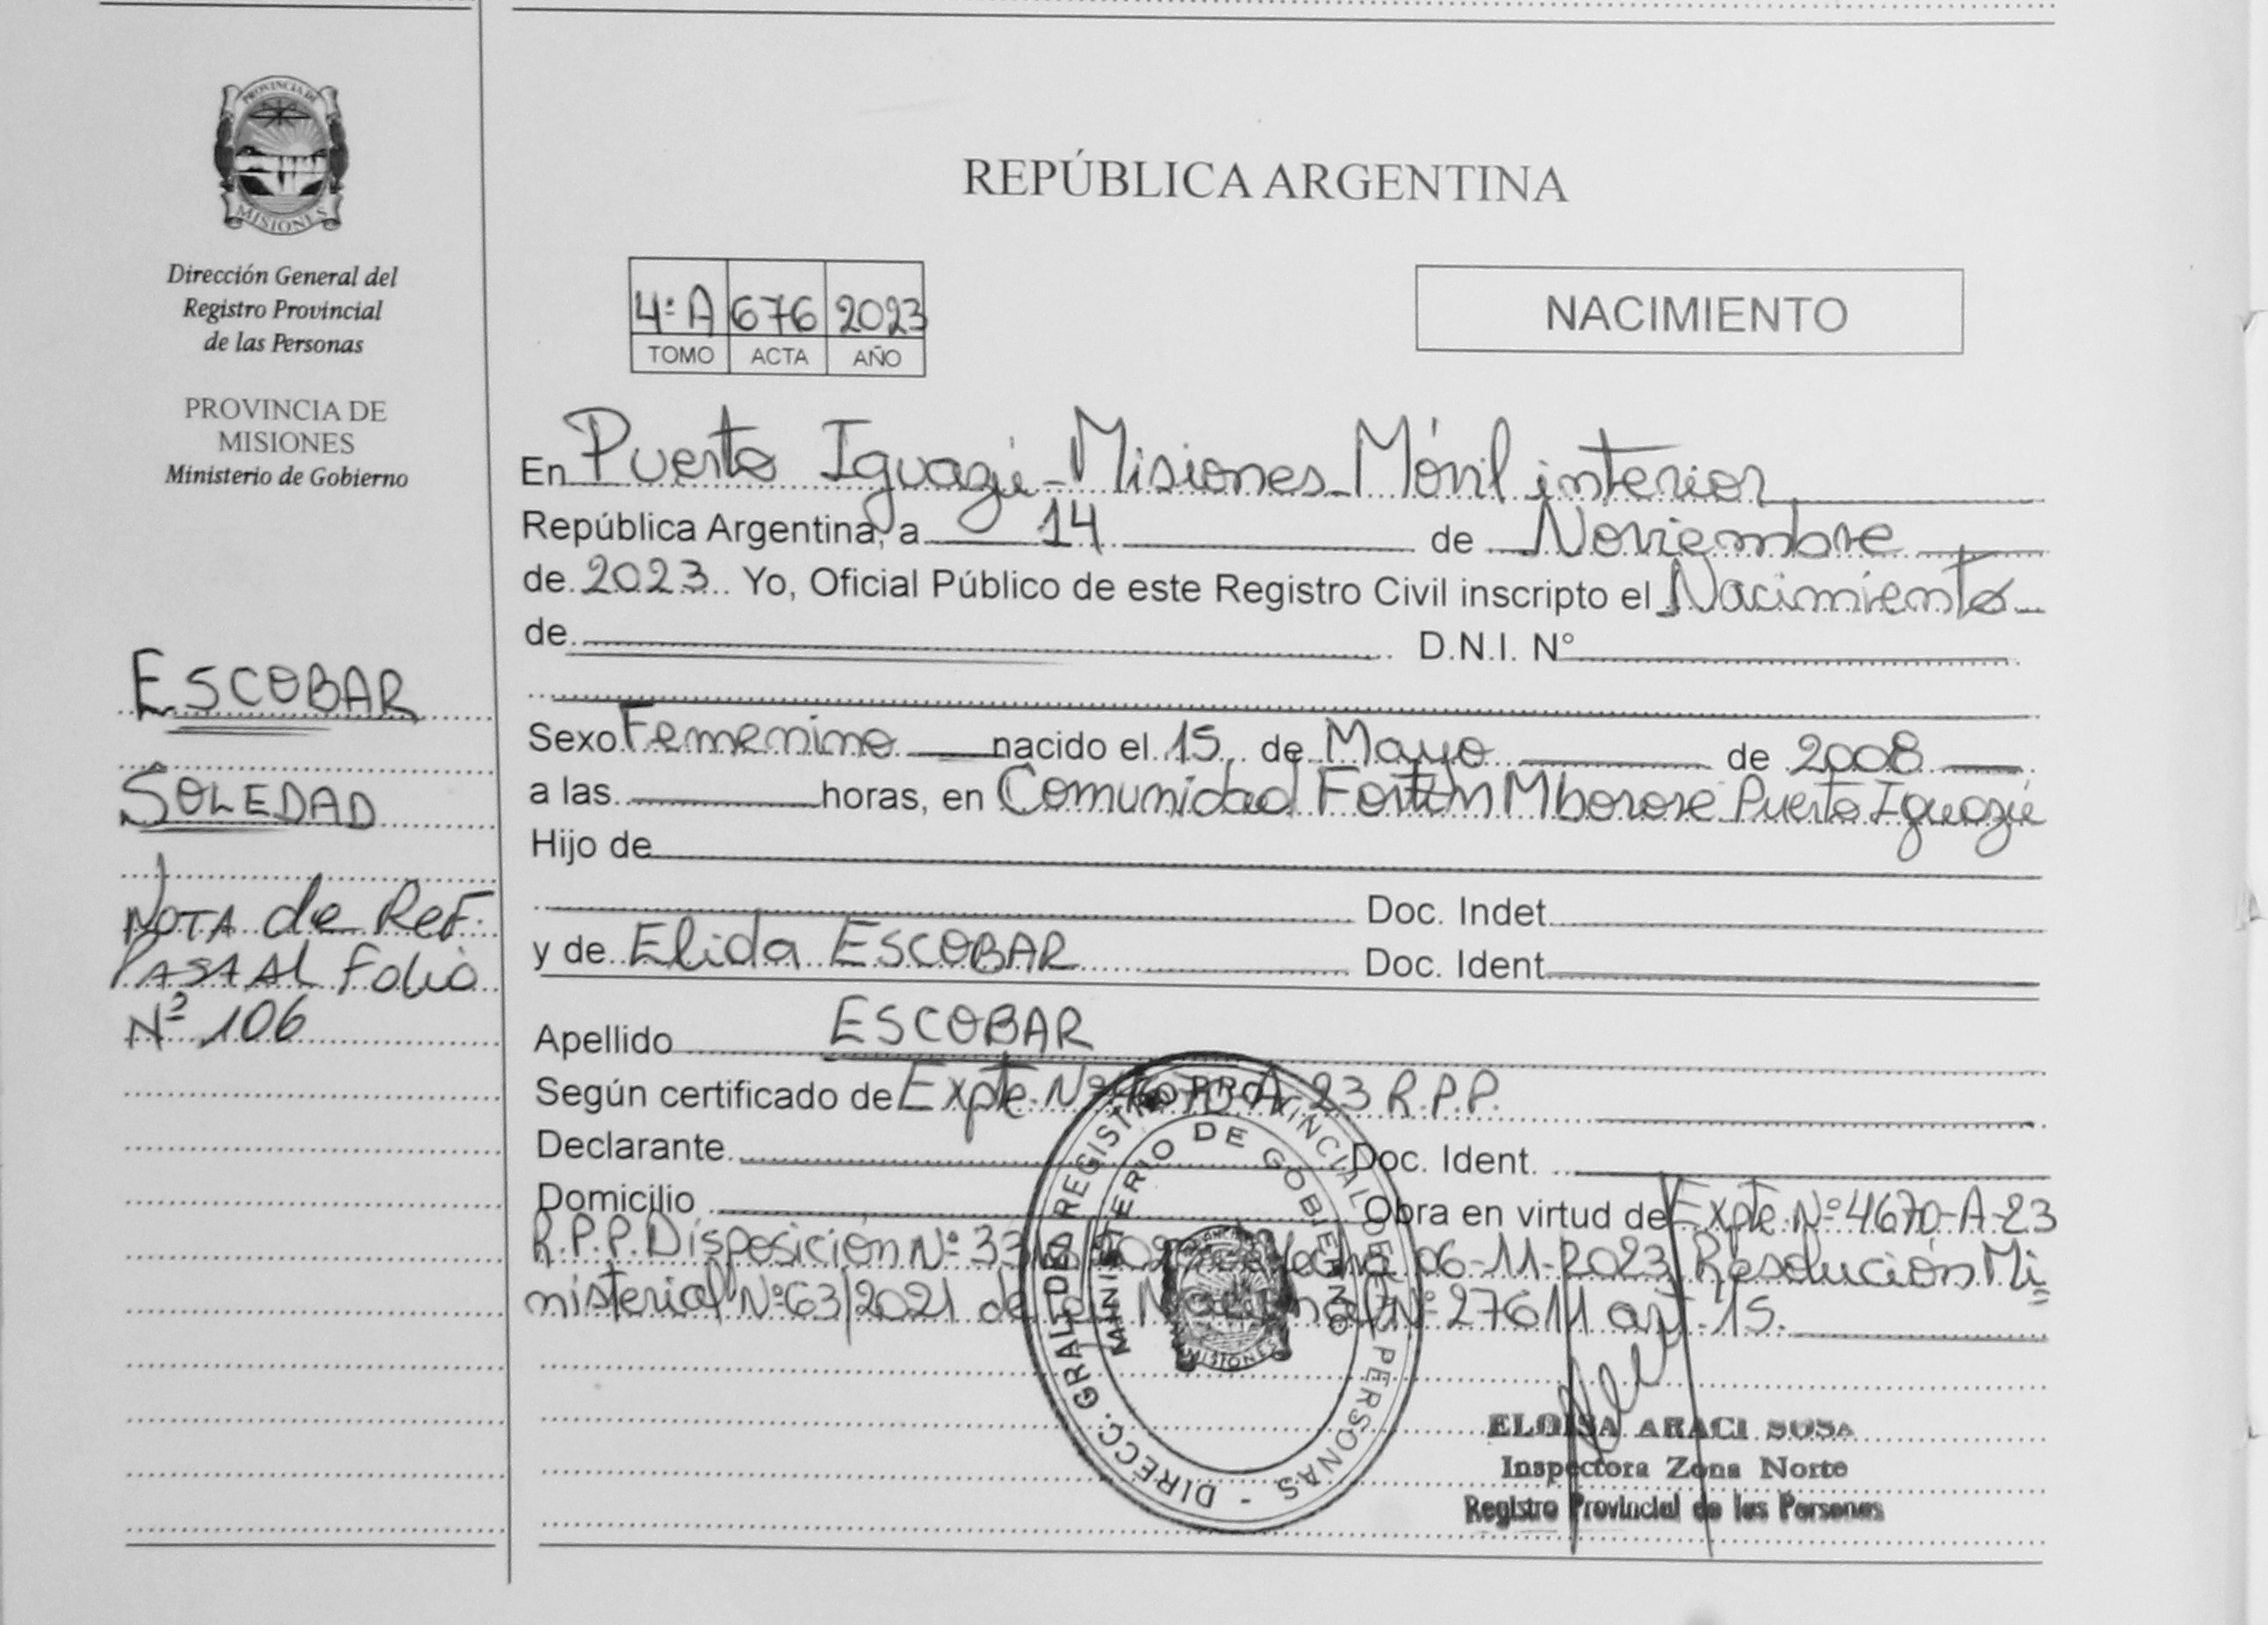 PROVINCIA DE
MISIONES
Dirección General del
Registro Provincial
de las Personas
PROVINCIA DE
MISIONES
Ministerio de Gobierno
ESCOBAR
SOLEDAD
NOTA de Ref.
PASA Al folio
Nº 106
REPÚBLICA ARGENTINA
4º A 676 2023
TOMO ACTA AÑO
NACIMIENTO
En Puerto Iguazú - Misiones - Móvil interior
República Argentina, a 14 de Noviembre
de 2023 Yo, Oficial Público de este Registro Civil inscripto el Nacimiento
de D.N.I. Nº
Sexo Femenino nacido el 15 de Mayo de 2008
a las horas, en Comunidad Fortin Mborore Puerto Iguazú
Hijo de
Doc. Indet
y de Elida ESCOBAR Doc. Ident
Apellido ESCOBAR
Según certificado de Expte. Nº 4670-A-23 R.P.P.
Declarante Doc. Ident.
Domicilio Obra en virtud de Expte. Nº 4670-A-23
R.P.P. Disposición Nº fecha 06-11-2023, Resolución Mi=
nisterial Nº 63/2021 de Nº 27611 art. 15.
DIRECC. GRAL DEL REGISTRO PROVINCIAL DE LAS PERSONAS -
MINISTERIO DE GOBIERNO
MISIONES
ELOISA ARACI SOSA
Inspectora Zona Norte
Registro Provincial de las Personas